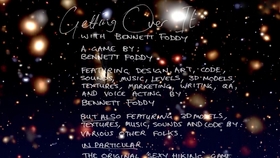 Getting Over It
WITH BENNETT FODDY
A GAME BY:
BENNETT FODDY
FEATURING DESIGN, ART, CODE,
SOUNDS, MUSIC, LEVELS, 3D MODELS,
TEXTURES, MARKETING, WRITING, QA,
AND VOICE ACTING BY:
BENNETT FODDY
BUT ALSO FEATURING 3D MODELS,
TEXTURES, MUSIC, SOUNDS AND CODE BY:
VARIOUS OTHER FOLKS.
IN PARTICULAR:
THE ORIGINAL SEXY HIKING GAME